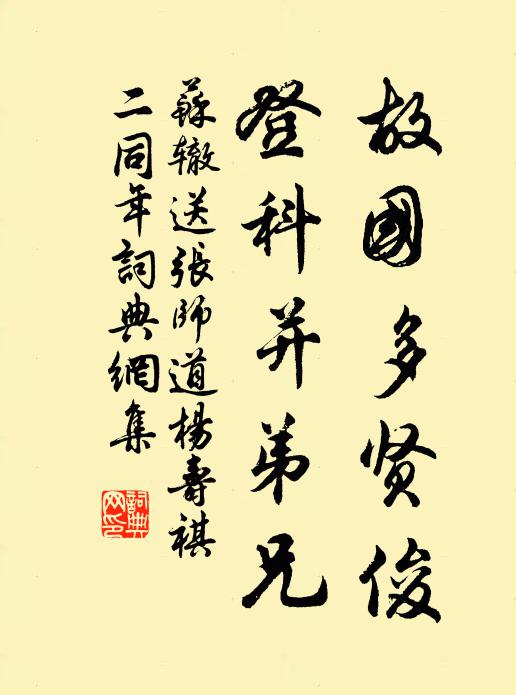 故國多贤俊
登科并弟兄
蘇辙送張師道楊壽祺
二同年詞典網集
詞典
网印